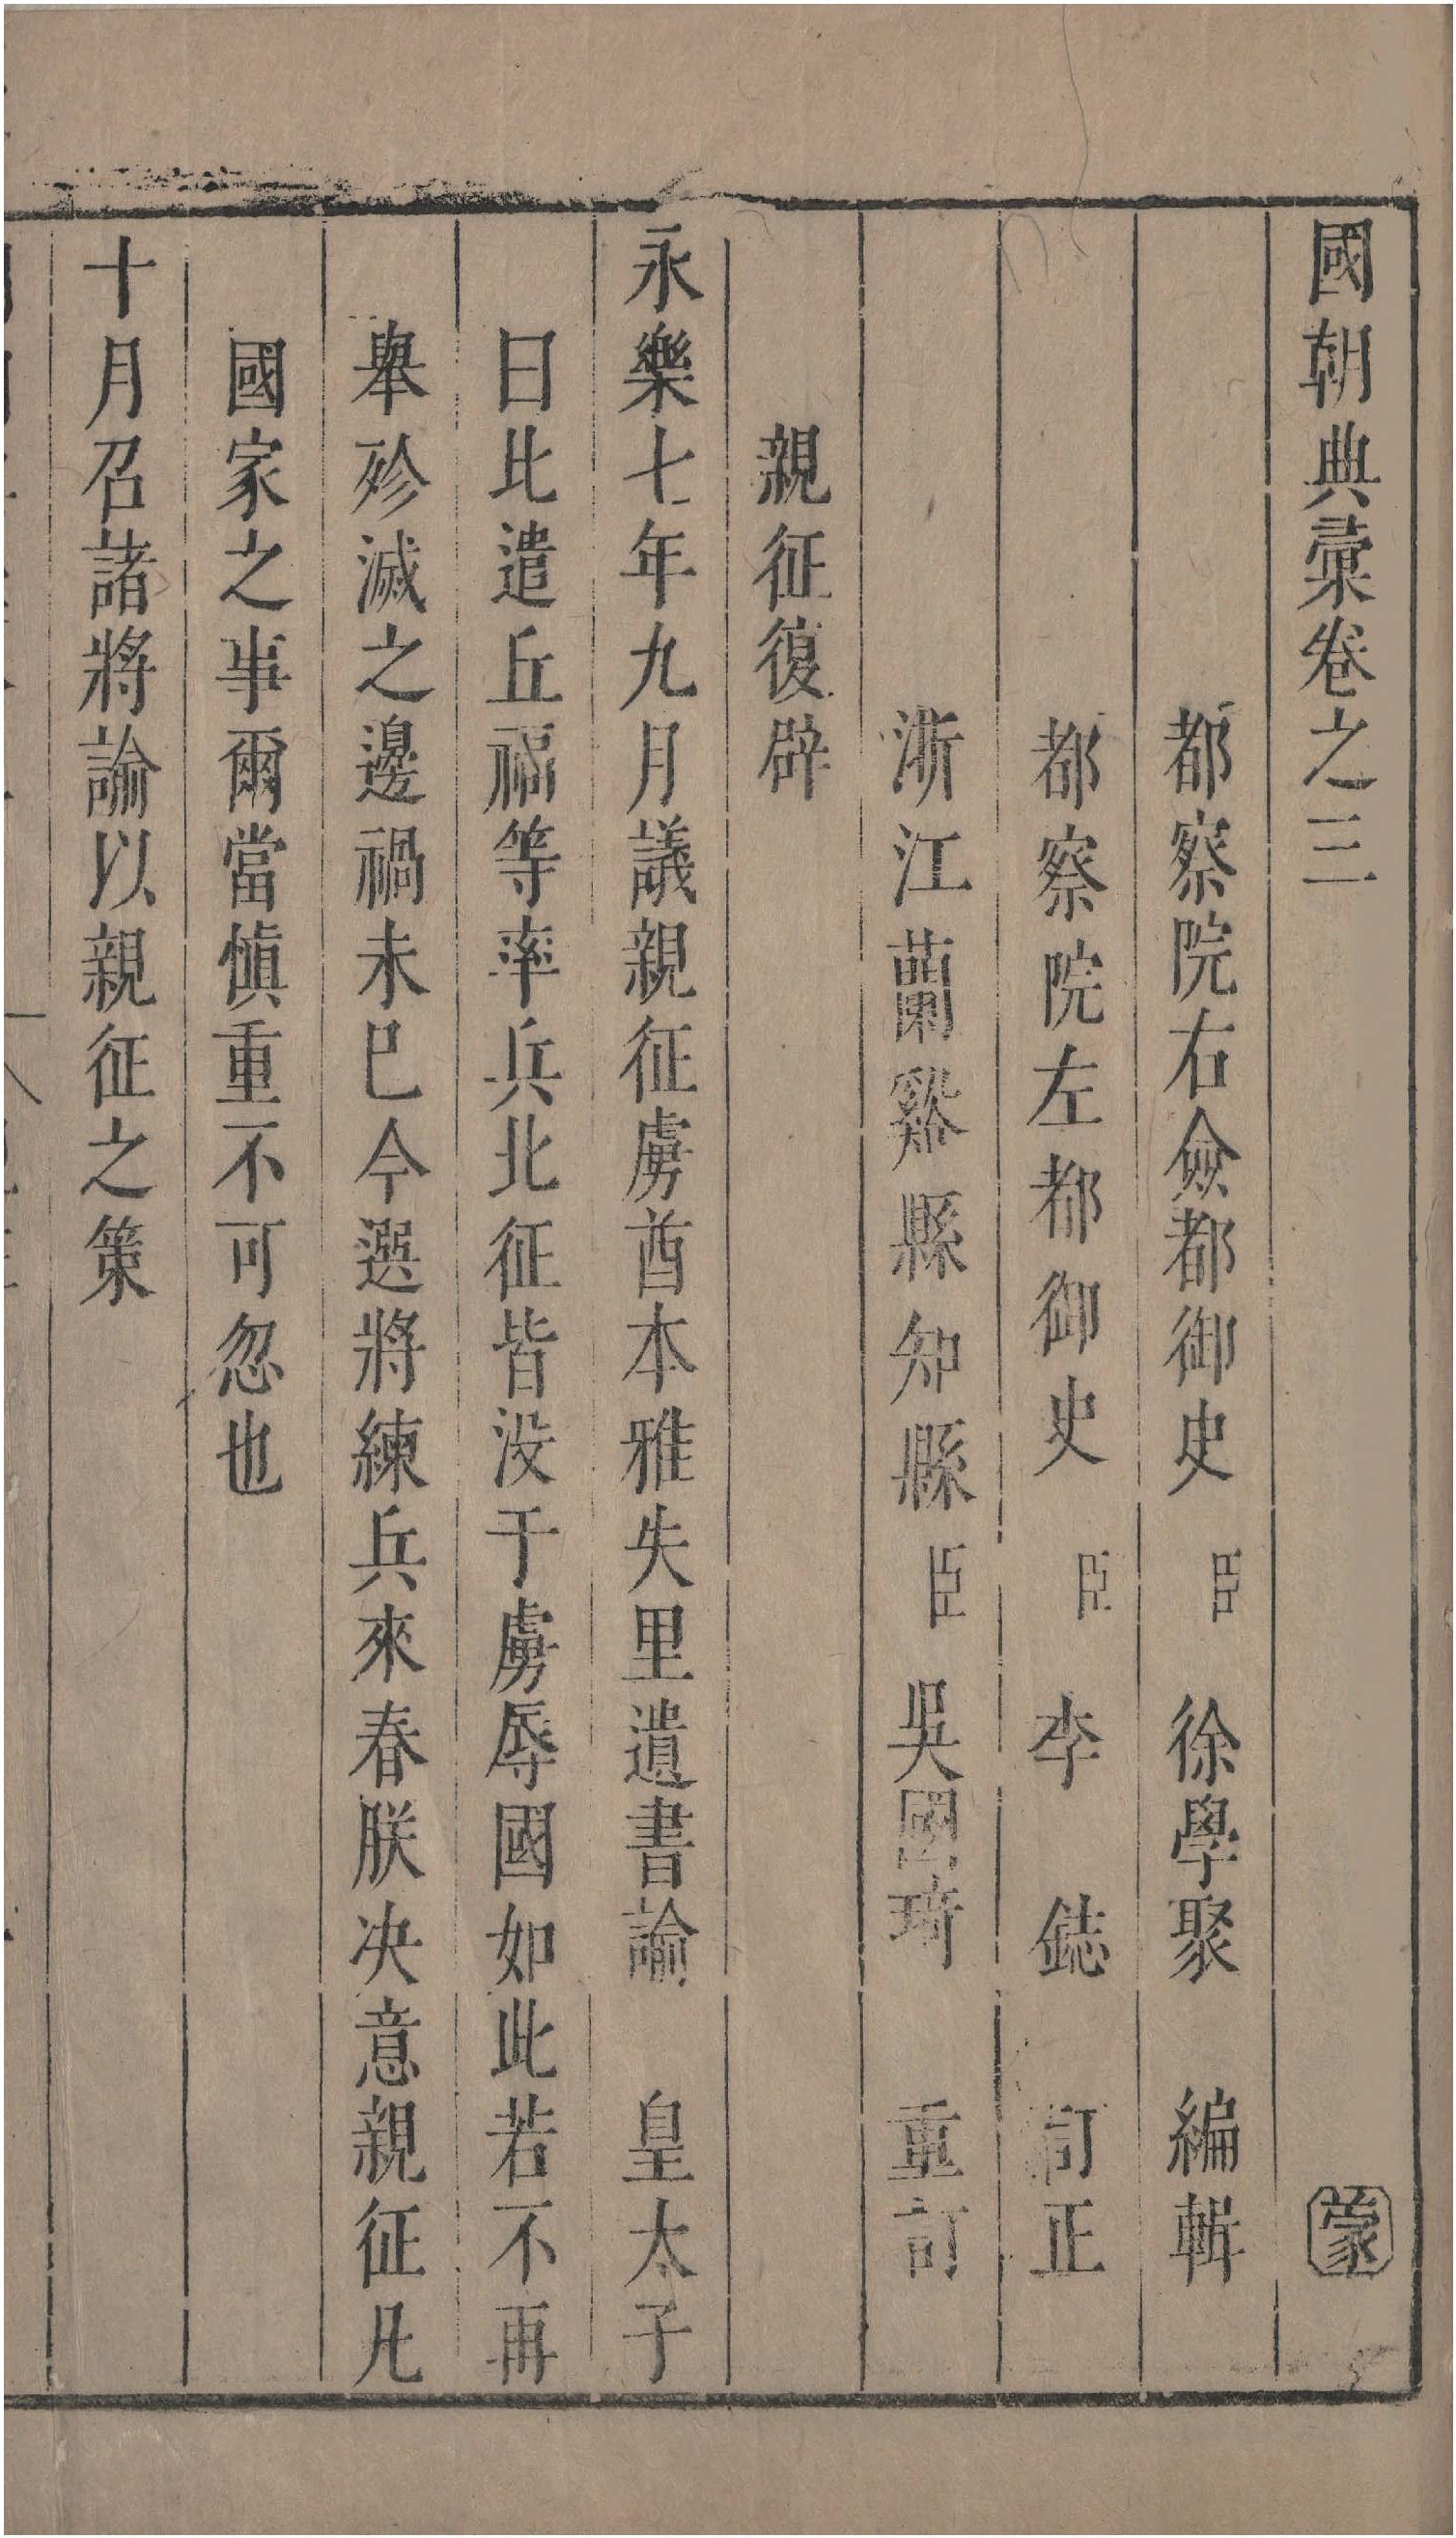 國朝典彙卷之三 蒙
都察院右僉都御史 臣 徐學聚 編輯
都察院左都御史 臣 李 鋕 訂正
浙江蘭谿縣知縣 臣 吳國琦 重訂
親征復辟
永樂七年九月議親征虜酋本雅失里遺書諭 皇太子
曰比遣丘福等率兵北征皆没于虜辱國如此若不再
舉殄滅之邊禍未已今選將練兵來春朕决意親征凡
國家之事爾當慎重不可忽也
十月召諸將諭以親征之策